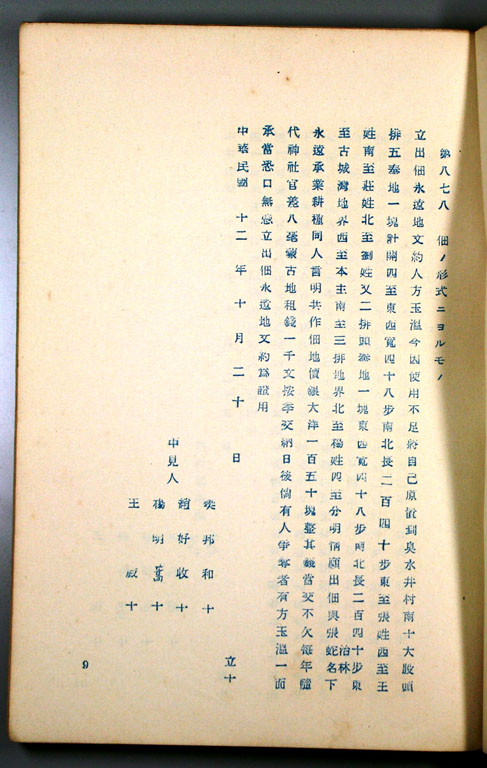 第八七八　佃ノ形式ニヨルモノ
立出佃永遠地文約人方玉溫今因使用不足將自己原置到臭水井村南十大股頭
排五泰地一塊計開四至東西寬四十八步南北長二百四十步東至張姓西至王
姓南至莊姓北至劉姓又二排頭泰地一塊東西寬四十八步南北長二百四十步東
至古城灣地界西至本主南至三排地界北至楊姓四至分明情願出佃與張蛇治林名下
永遠承業耕種同人言明共作佃地價銀大洋一百五十塊整其錢當交不欠每年隨
代神社官差八毫蒙古地租錢一千文按季交納日後倘有人爭奪者有方玉溫一面
承當恐口無憑立出佃永遠地文約爲證用
中華民國　十二年十月二十　日
立十
邦和十
中見人　趙好收十
楊明萬十
王　十
9